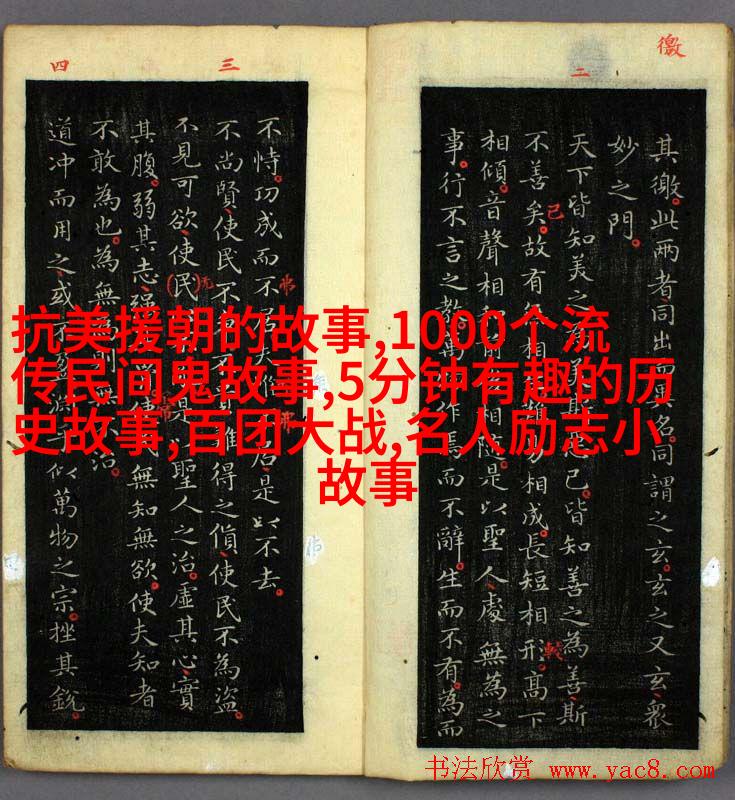 抗美援朝的故事,1000个流
传民间鬼故事,5分钟有趣的历
史故事,百团大战,名人励志小
故事
徼
二
其徼。此两者同出而其名同謂之玄。玄之又玄。衆
妙之門。
天下皆知美之已。皆知善之為善斯
不善矣。故有相相成。長短相形。高下
已
較
相傾。音聲相相是以聖人處無為之
事。行不言之教。作焉而不辭。生而不有。為而
三
四
不恃。功成而不居居是以不去。
弗
弗
不尚賢。使民不難得之貨。使民不為盜。
不見可欲。使民是以聖人之治。虛其心。實
无
其腹。弱其志。強使無知無欲。使夫知者
不敢為也。為無則治。
道冲而用之。或不以萬物之宗。挫其銳。
书法欣赏 www.yac8.com